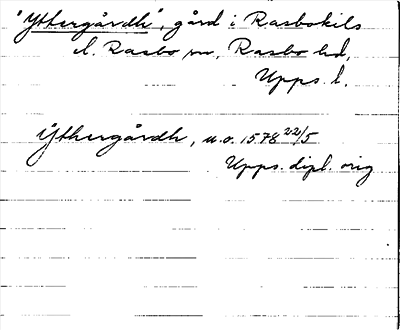 "Yttergårdh", gård i Rasbokils
el. Rasbo sn, Rasbo hd,
Upps. l.
Ythergårdh, u.o. 1578 22/5
Upps. dipl. orig